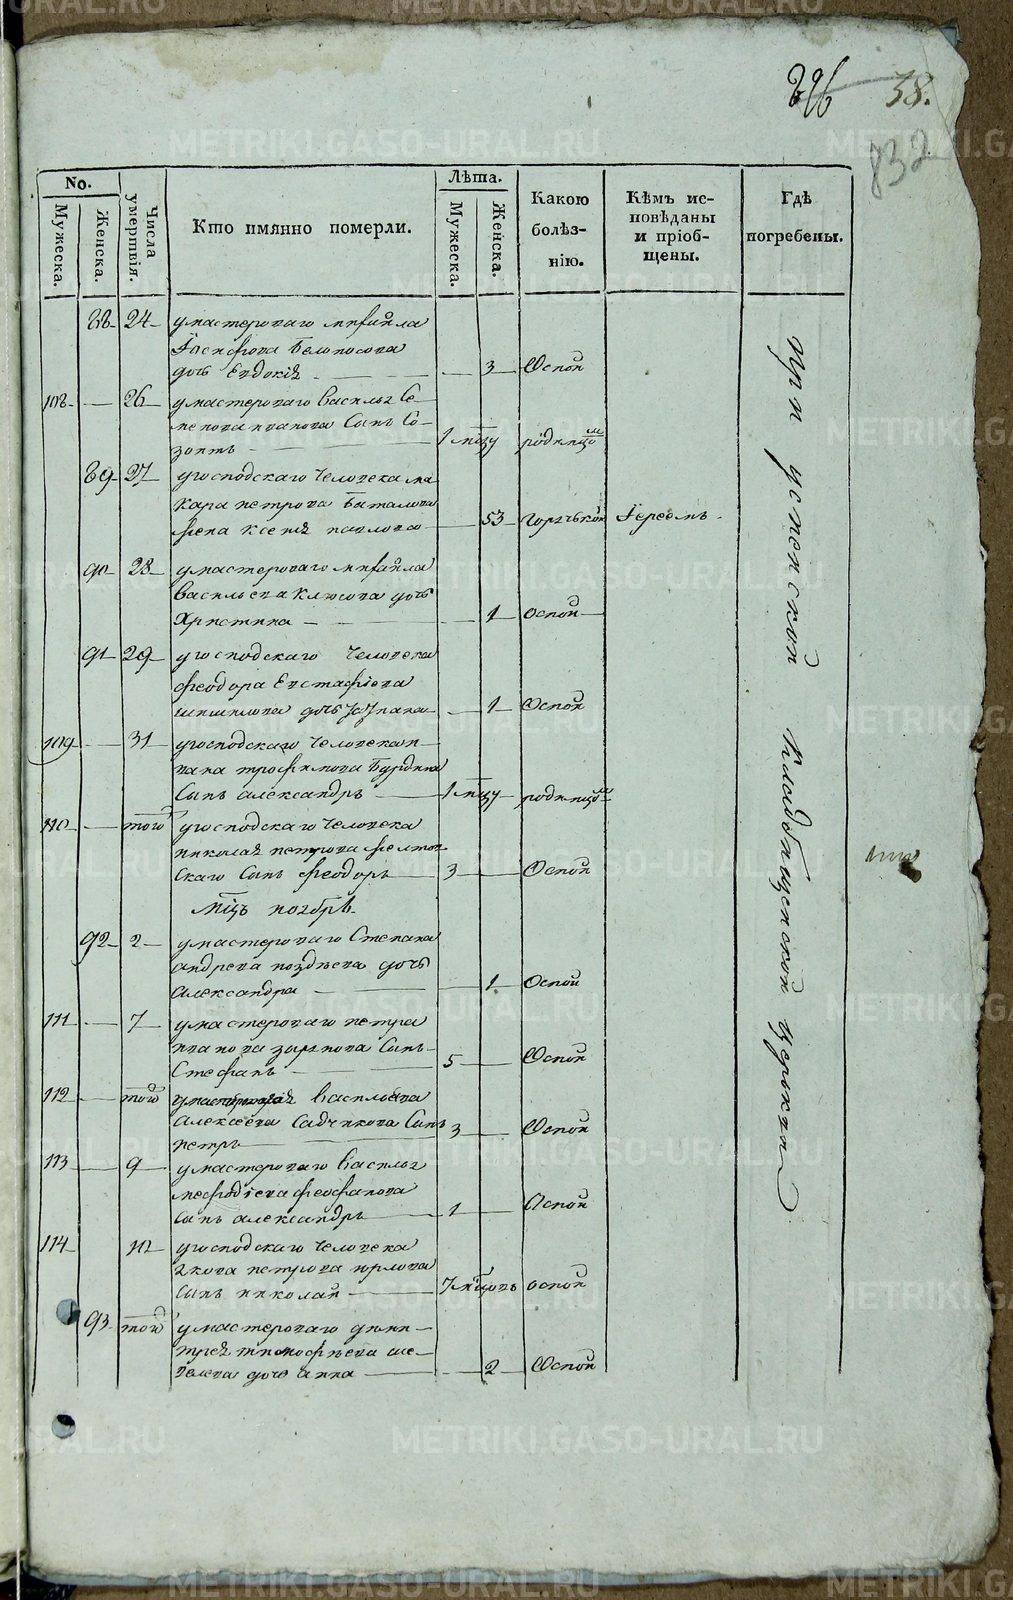 38.
832
No.
Мужеска.
Женска.
Числа умертвія.
Кто имянно померли.
Лѣта.
Мужеска.
Женска.
Какою болѣз-нію.
Кѣмъ ис-повѣданы и пріоб-щены.
Гдѣ погребены.
88 24 умастероваго михайла
Іосифова Белоносова
дочь Евдокія 3 Оспой
108 26 умастероваго Василья Се-
менова иванова Сынъ Со-
зонтъ 1 мцу родимцом
89 27 угосподскаго человека ма
кара петрова Баталова
жена Ксенія павлова 53 горячькой Іереемъ
90 28 умастероваго михайла
Васильева Клюсова дочь
Христина 1 оспой
91 29 угосподскаго человека
феодора Евстафіева
шишилова дочь 1 Оспой
109 31 угосподскаго человека и-
вана трофимова Бурдина
Сынъ александръ 1 мцу родимцом
110 того угосподскаго человека
николая петрова
скаго Сынъ феодоръ 3 Оспой
мцъ ноябрь
92 2 умастероваго Степана
андреева позднева дочь
александра 1 Оспой
111 7 умастероваго петра
иванова Сынъ
Стефанъ 5 Оспой
112 того Васильева
алексеева Садчикова Сынъ
петръ 3 Оспой
113 9 умастероваго Василья
мефодіева феофанова
сынъ александръ 1 Оспой
114 10 угосподскаго человека
якова петрова орлова
сынъ николай 7 мцовъ оспой
93 того умастероваго дими-
трея тимофеева ше-
велева дочь анна 2 Оспой
при успенской Кладбищенской церкви
METRIKI.GASO-URAL.RU